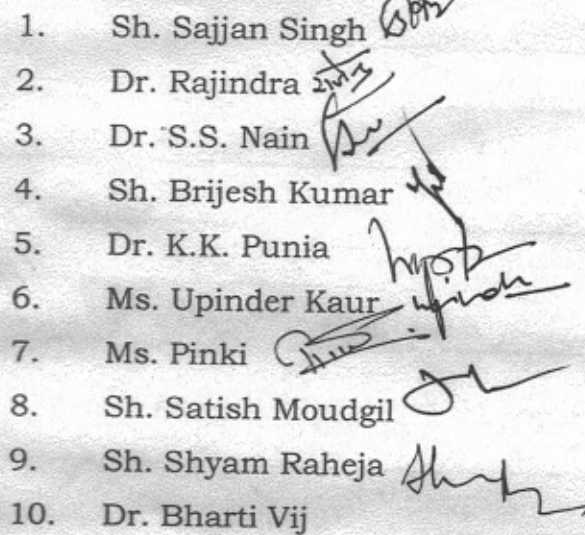 1. Sh. Sajjan Singh
2. Dr. Rajindra
3. Dr. S.S. Nain
4. Sh. Brijesh Kumar
5. Dr. K.K. Punia
6. Ms. Upinder Kaur
7. Ms. Pinki
8. Sh. Satish Moudgil
9. Sh. Shyam Raheja
10. Dr. Bharti Vij